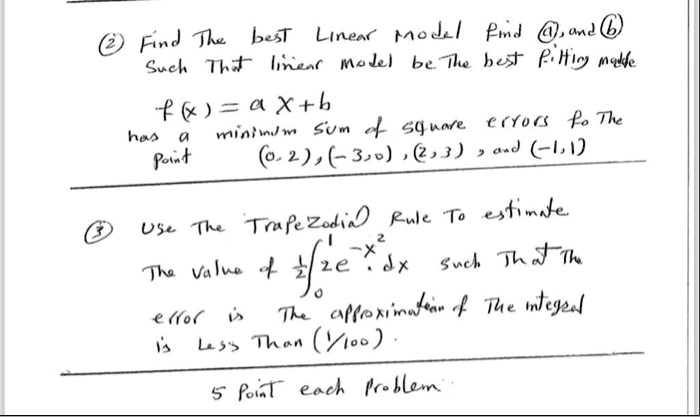 ② Find The best Linear Model find ⓐ, and ⓑ
Such That linear model be The best fitting modle
f(x) = ax+b
has a minimum sum of square errors fo The
Point (0, 2), (-3,0), (2,3), and (-1,1)
③ Use The Trapezodial Rule To estimate
The value of ½∫₀¹ 2e^{-x²} . dx such That The
error is The approximation of The integral
is Less Than (1/100).
5 Point each Problem